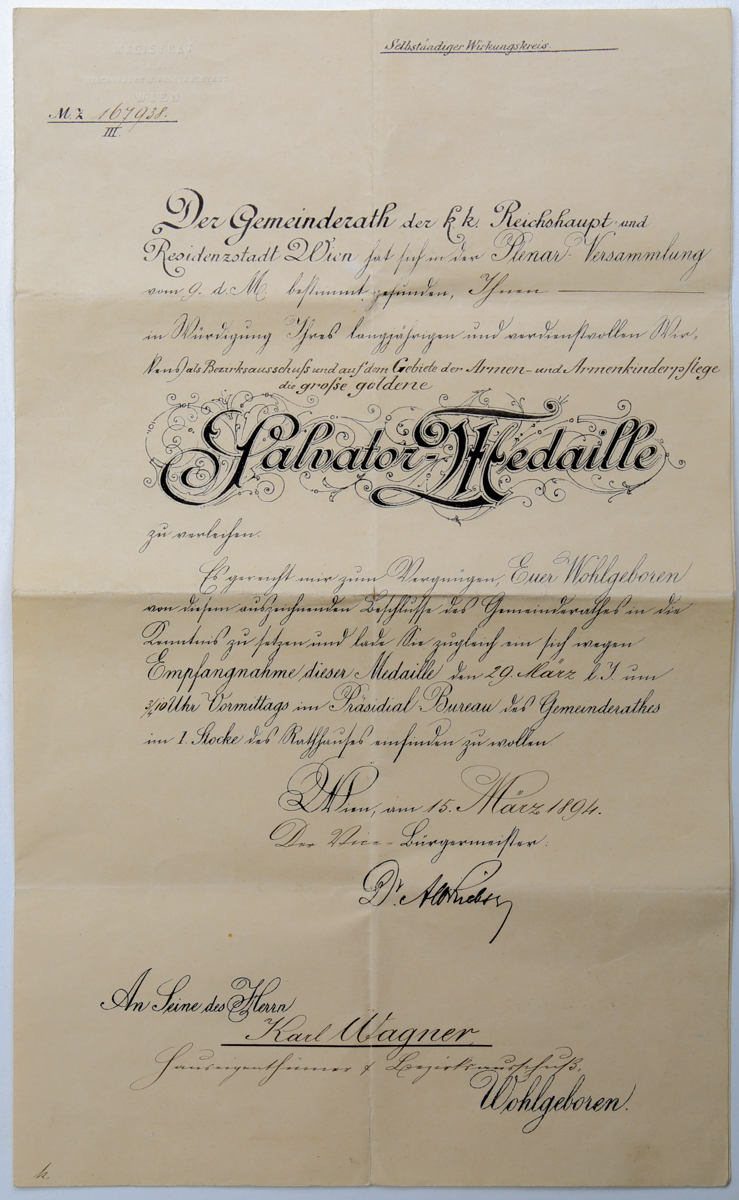 Selbständiger Wirkungskreis.
WIEN
M. Z. 167938.
III.
Der Gemeinderath der k.k. Reichshaupt- und
Residenzstadt Wien hat sich in der Plenar-Versammlung
vom 9. d. M. bestimmt gefunden, Ihnen
in Würdigung Ihres langjährigen und verdienstvollen Wir-
kens als Bezirksausschuß und auf dem Gebiete der Armen- und Armenkinderpflege
die große goldene
Salvator-Medaille
zu verleihen.
Es gereicht mir zum Vergnügen, Euer Wohlgeboren
von diesem auszeichnenden Beschlusse des Gemeinderathes in die
Kenntnis zu setzen und lade Sie zugleich ein sich wegen
Empfangnahme dieser Medaille den 29. März l. J. um
3/4 10 Uhr Vormittags im Präsidial-Bureau des Gemeinderathes
im I. Stocke des Rathhauses einfinden zu wollen.
Wien, am 15. März 1894.
Der Vice-Bürgermeister:
Dr. Alb
An Seine des Herrn
Karl Wagner
Hauseigenthümer & Bezirksausschuß,
Wohlgeboren.